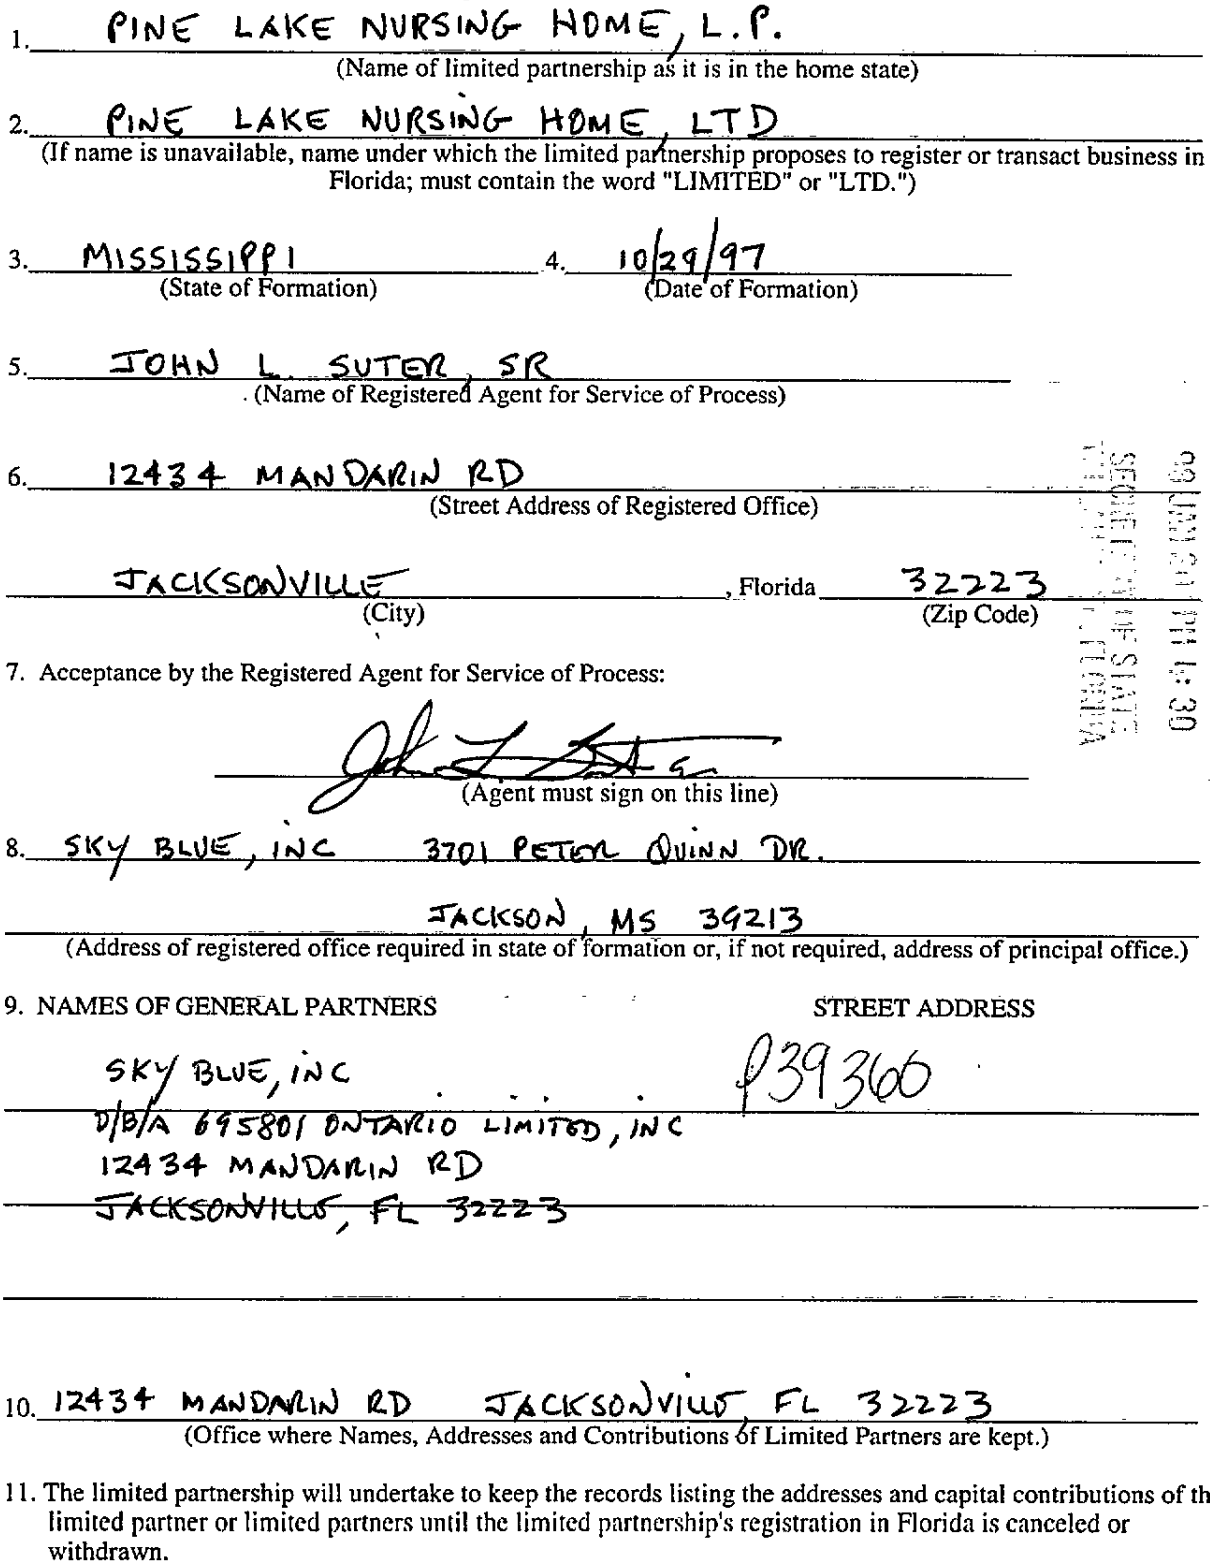 1. PINE LAKE NURSING HOME, L.P.
(Name of limited partnership as it is in the home state)
2. PINE LAKE NURSING HOME, LTD
(If name is unavailable, name under which the limited partnership proposes to register or transact business in
Florida; must contain the word "LIMITED" or "LTD.")
3. MISSISSIPPI 4. 10/29/97
(State of Formation) (Date of Formation)
5. JOHN L. SUTER, SR
(Name of Registered Agent for Service of Process)
6. 12434 MANDARIN RD
(Street Address of Registered Office)
JACKSONVILLE, Florida 32223
(City) (Zip Code)
7. Acceptance by the Registered Agent for Service of Process:
(Agent must sign on this line)
8. SKY BLUE, INC 3701 PETER QUINN DR.
JACKSON, MS 39213
(Address of registered office required in state of formation or, if not required, address of principal office.)
9. NAMES OF GENERAL PARTNERS STREET ADDRESS
SKY BLUE, INC P39360
D/B/A 695801 ONTARIO LIMITED, INC
12434 MANDARIN RD
JACKSONVILLE, FL 32223
10. 12434 MANDARIN RD JACKSONVILLE, FL 32223
(Office where Names, Addresses and Contributions of Limited Partners are kept.)
11. The limited partnership will undertake to keep the records listing the addresses and capital contributions of th
limited partner or limited partners until the limited partnership's registration in Florida is canceled or
withdrawn.
PM 4: 30
OF STATE
FLORIDA